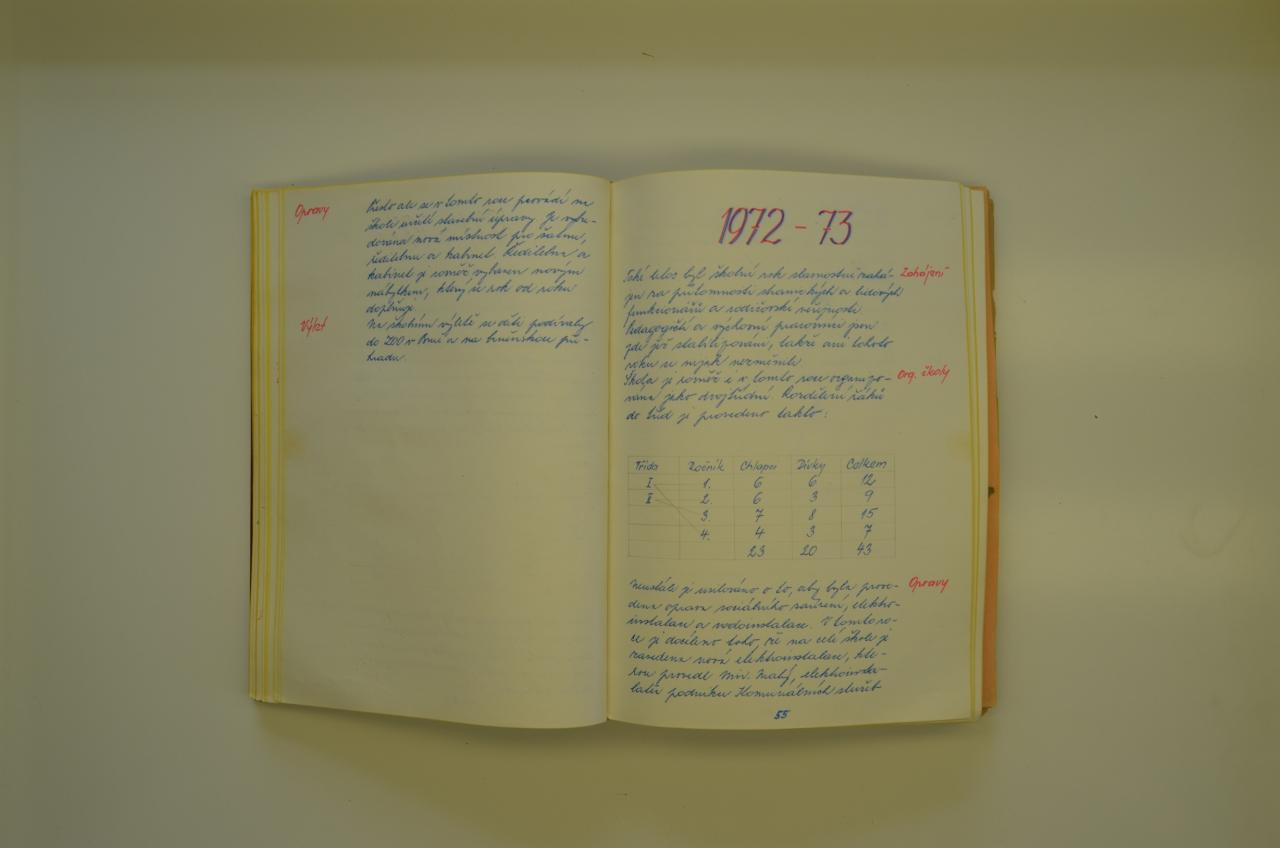 Opravy
Přesto ale se v tomto roce provádí na
škole určité stavební úpravy. Je vybu-
dována nová místnost pro šatnu,
ředitelnu a kabinet. Ředitelna a
kabinet je rovněž vybaven novým
nábytkem, který se rok od roku
doplňuje.
Výlet
Na školním výletě se děti podívaly
do ZOO v Brně a na brněnskou pře-
hradu.
1972 - 73
Také letos byl školní rok slavnostně zahá-
Zahájení
jen za přítomnosti stranických a lidových
funkcionářů a rodičovské veřejnosti.
Pedagogičtí a výchovní pracovníci jsou
zde již stabilizováni, takže ani tohoto
roku se nijak nezměnili.
Škola je rovněž i v tomto roce organizo-
Org. školy
vána jako dvojtřídní. Rozdělení žáků
do tříd je provedeno takto:
Třída Ročník Chlapci Dívky Celkem
I 1. 6 6 12
II 2. 6 3 9
3. 7 8 15
4. 4 3 7
23 20 43
Neustále je usilováno o to, aby byla prove-
Opravy
dena oprava sociálního zařízení, elektro-
instalace a vodoinstalace. V tomto ro-
ce je docíleno toho, že na celé škole je
zavedena nová elektroinstalace, kte-
rou provedl Mir. Malý, elektroinsta-
latér podniku Komunálních služeb
55